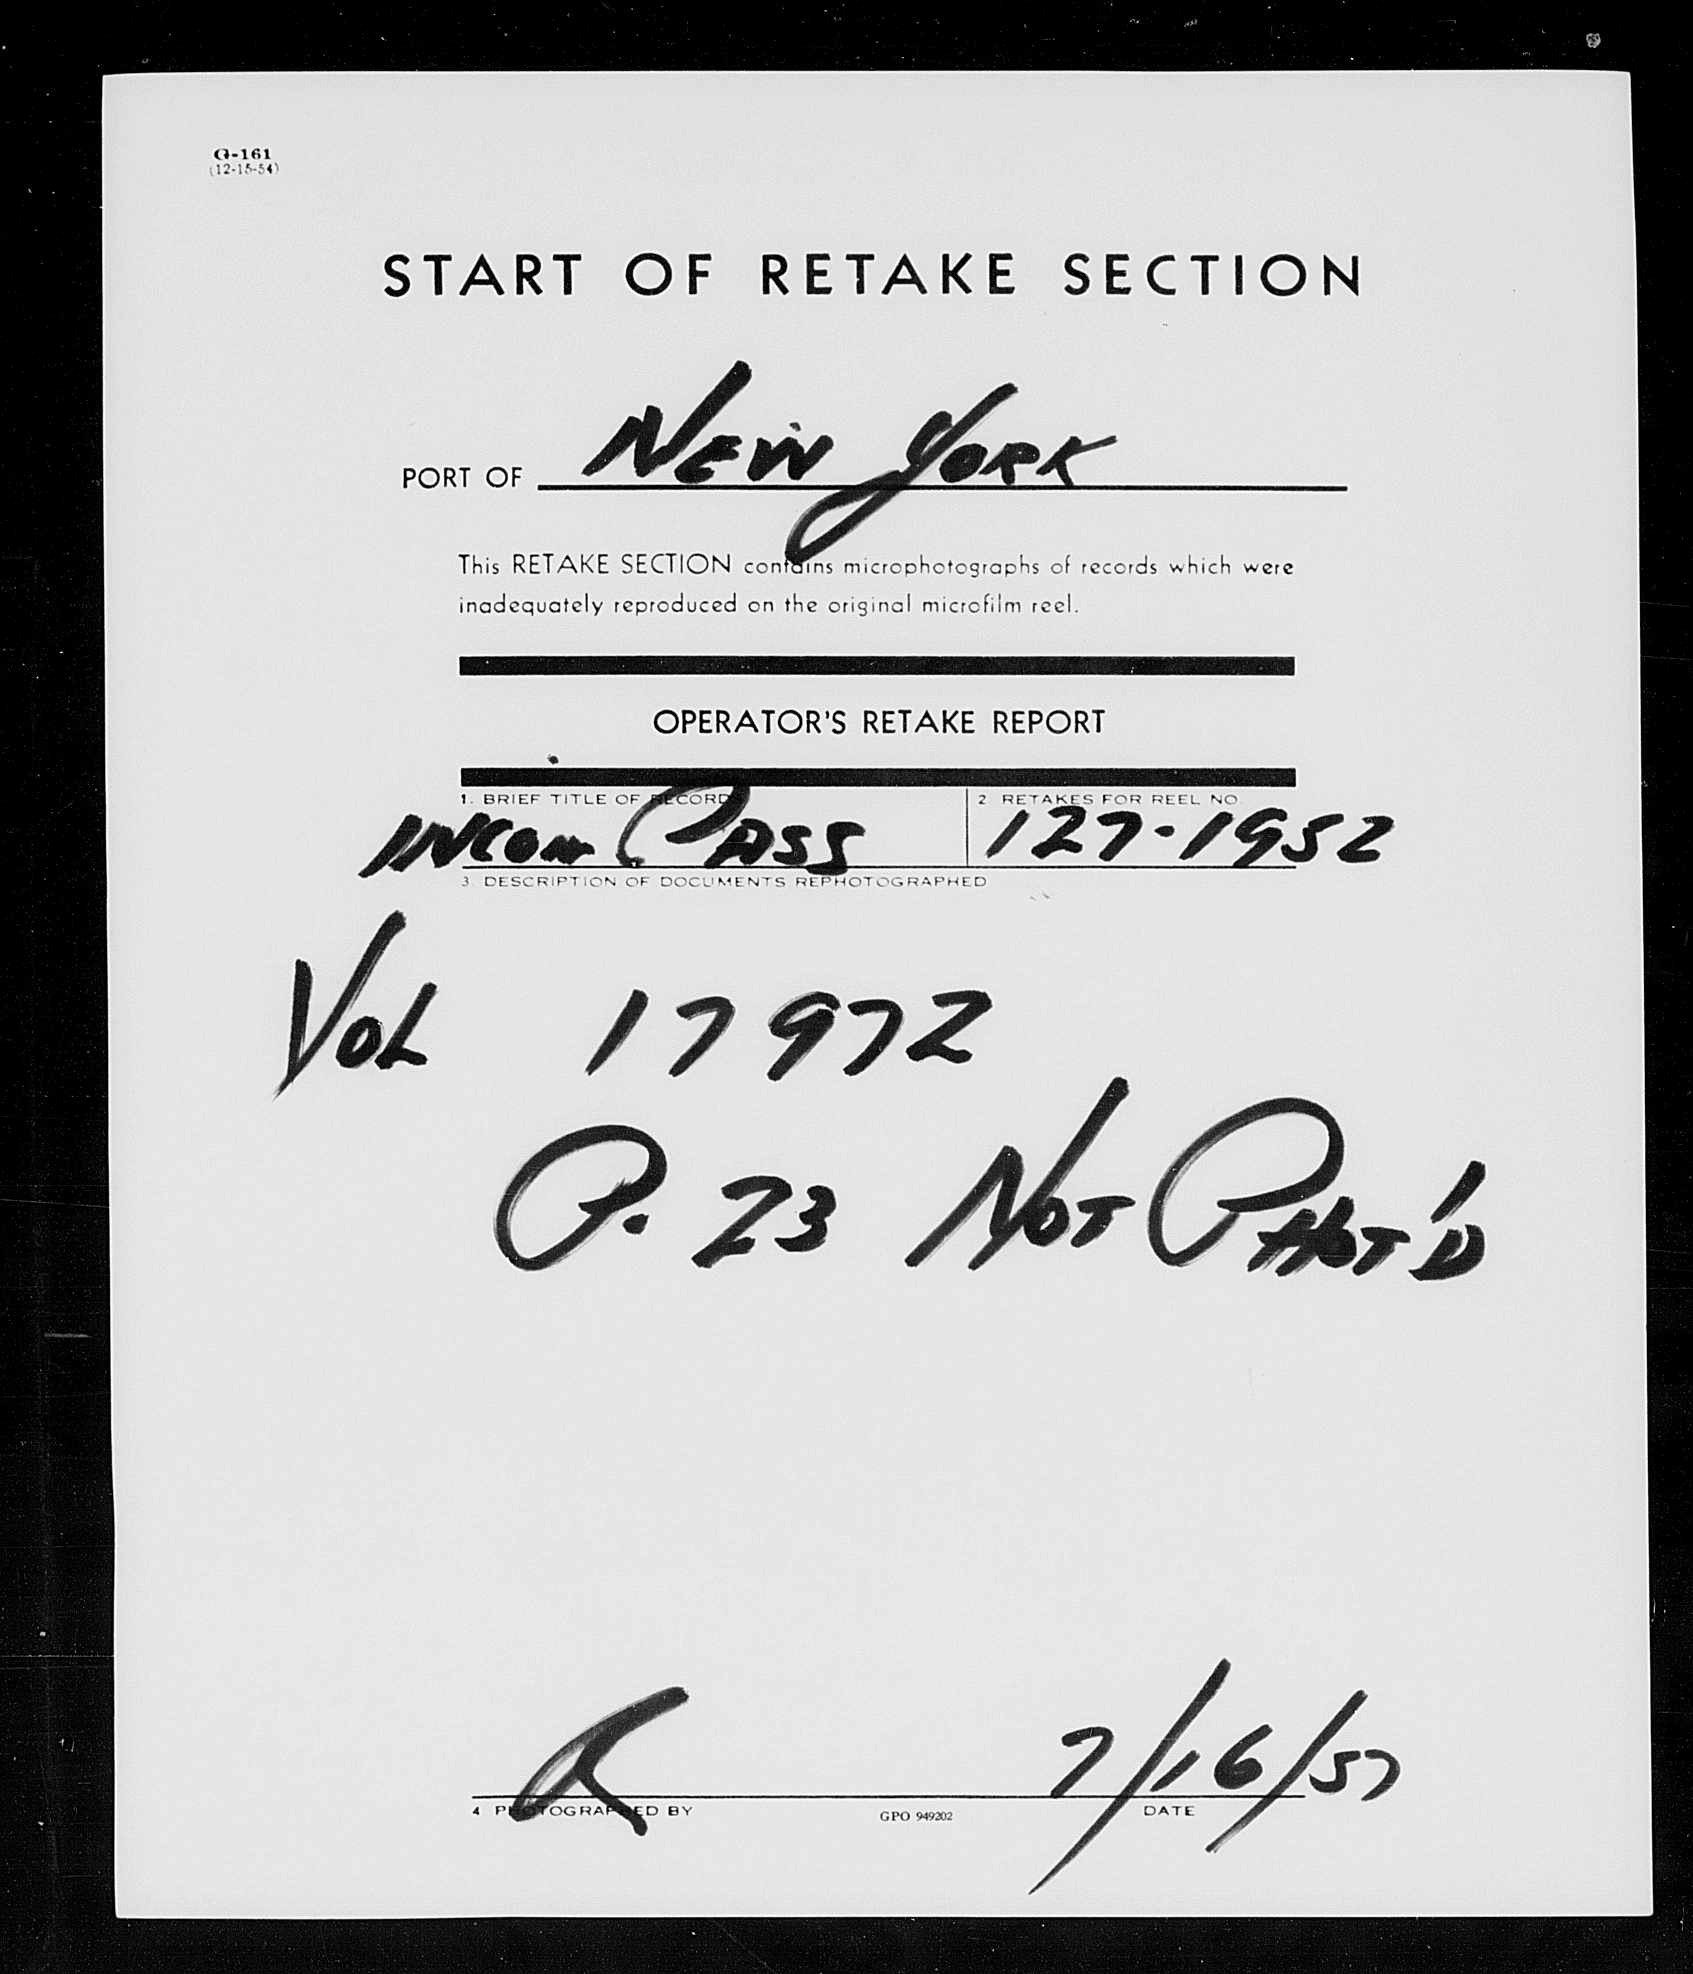 G-161
(12-15-54)
START OF RETAKE SECTION
PORT OF NEW YORK
This RETAKE SECTION contains microphotographs of records which were
inadequately reproduced on the original microfilm reel.
OPERATOR'S RETAKE REPORT
1. BRIEF TITLE OF RECORDS
INCOM PASS
2. RETAKES FOR REEL NO.
127-1952
3. DESCRIPTION OF DOCUMENTS REPHOTOGRAPHED
VOL 17972
P. 23 NOT PHOT'D
7/16/57
4. PHOTOGRAPHED BY
GPO 949202
DATE